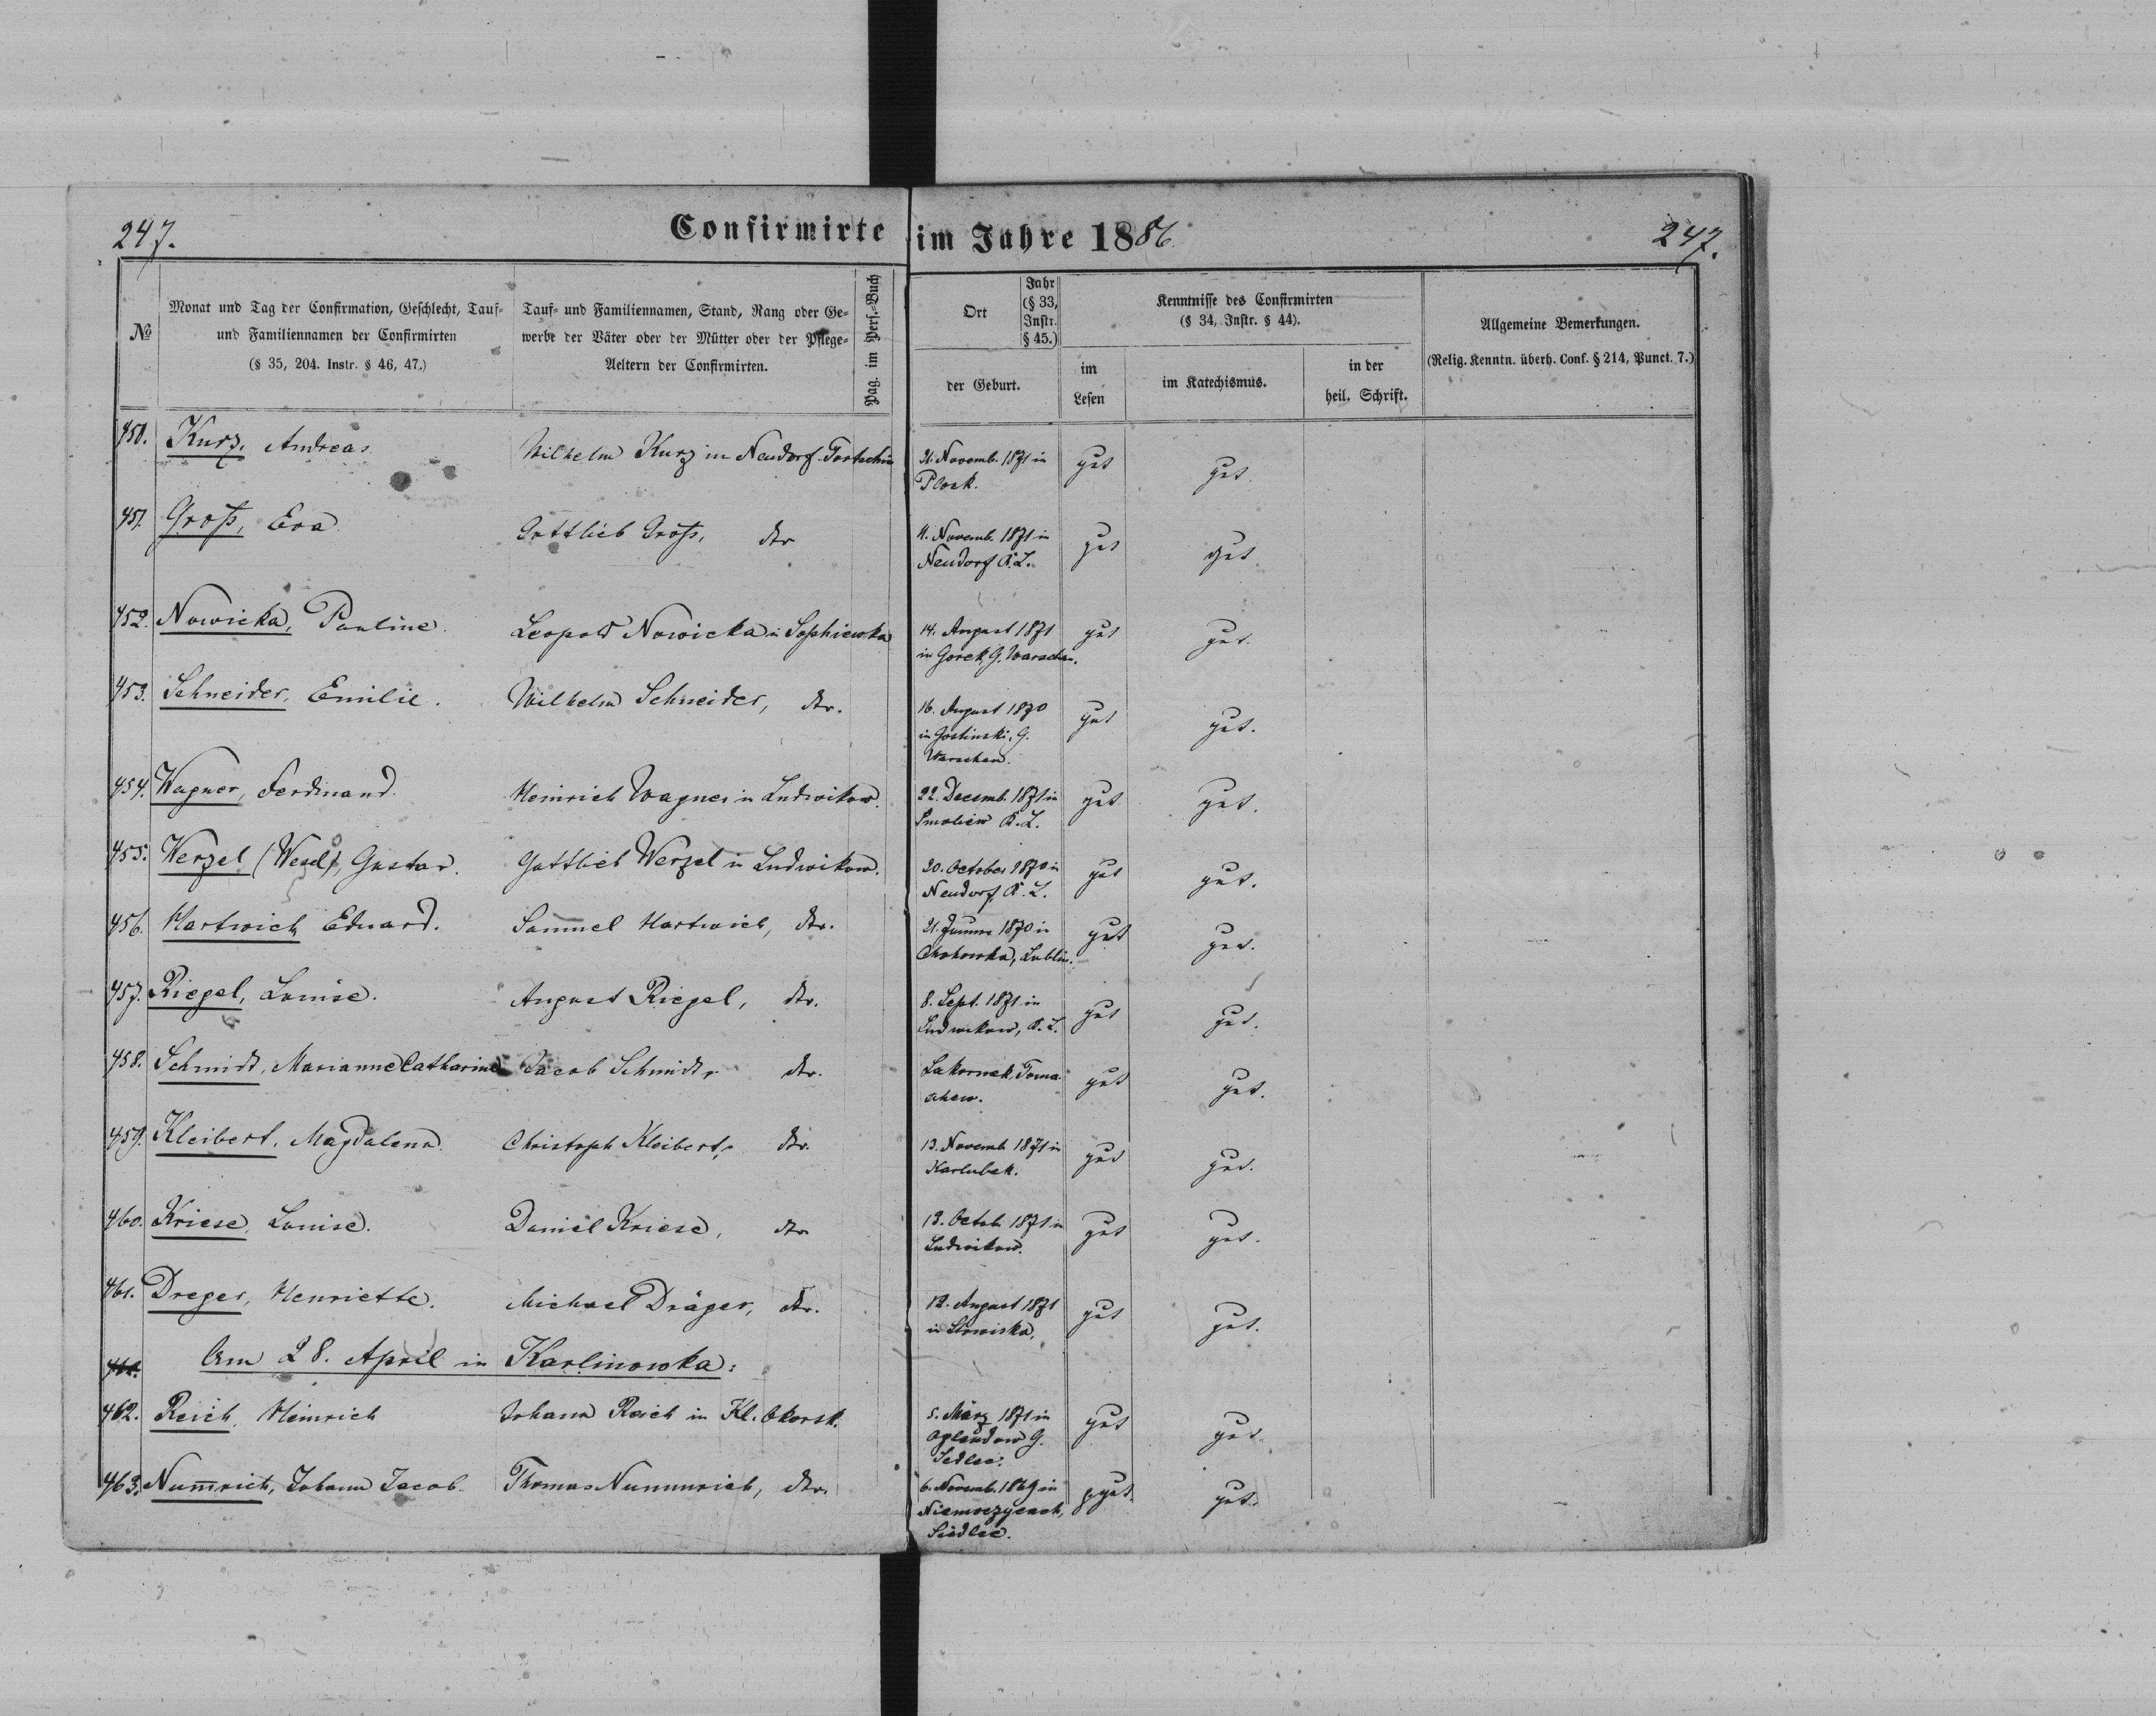 247.
Confirmirte im Jahre 1886
247.
№
Monat und Tag der Confirmation, Geschlecht, Tauf-
und Familiennamen der Confirmirten
(§ 35, 204. Instr. § 46, 47.)
Tauf- und Familiennamen, Stand, Rang oder Ge-
werbe der Väter oder der Mütter oder der Pflege-
Aeltern der Confirmirten.
Pag. im Pers.-Buch
Ort
Jahr
(§ 33,
Instr.
§ 45.)
der Geburt.
Kenntnisse des Confirmirten
(§ 34, Instr. § 44).
im
Lesen
im Katechismus.
in der
heil. Schrift.
Allgemeine Bemerkungen.
(Relig. Kenntn. überh. Conf. § 214, Punct. 7.)
450. Kurz, Andreas. Wilhelm Kurz in Neudorf-Tortschin 21. Novemb. 1871 in gut gut.
Plozk.
451. Groß, Eva. Gottlieb Groß, dto 4. Novemb. 1871 in gut gut.
Neudorf K. L.
452. Nowicka, Pauline. Leopold Nowicka in Sophiewka 14. August 1871 gut gut.
in Gorek, G. Warschau.
453. Schneider, Emilie. Wilhelm Schneider, dto. 16. August 1870 gut gut.
in Gostinski, G.
Warschau.
454. Wagner, Ferdinand. Heinrich Wagner in Ludwikow. 22. Decemb. 1871 in gut gut.
K. L.
455. Werzel (Wesel), Gustav. Gottlieb Werzel in Ludwikow. 20. October 1870 in gut gut.
Neudorf, K. L.
456. Hartwich Eduard. Samuel Hartwich, dto. 21. Januar 1870 in gut gut.
Lublin.
457. Riegel, Louise. August Riegel, dto. 8. Sept. 1871 in gut gut.
Ludwikow, K. L.
458. Schmidt, Marianne Catharine Jacob Schmidt, dto. Lakornek, Toma- gut gut.
schew.
459. Kleibert, Magdalena. Christoph Kleibert, dto. 13. Novemb. 1871 in gut gut.
Karlubek.
460. Kriese, Louise. Daniel Kriese, dto 13. Octob. 1871 in gut gut.
Ludwikow.
461. Dreger, Henriette. Michael Dräger, dto. 12. August 1871 gut gut.
in Slowiska.
Am 28. April in Karlinowka:
462. Reich, Heinrich Johann Reich in Kl. Okorsk. 5. März 1871 in gut gut.
G.
Sedlec.
463. Num̅rich, Johann Jacob. Thomas Nummrich, dto. 6. Novemb. 1869 in gut. gut.
Siedlec.